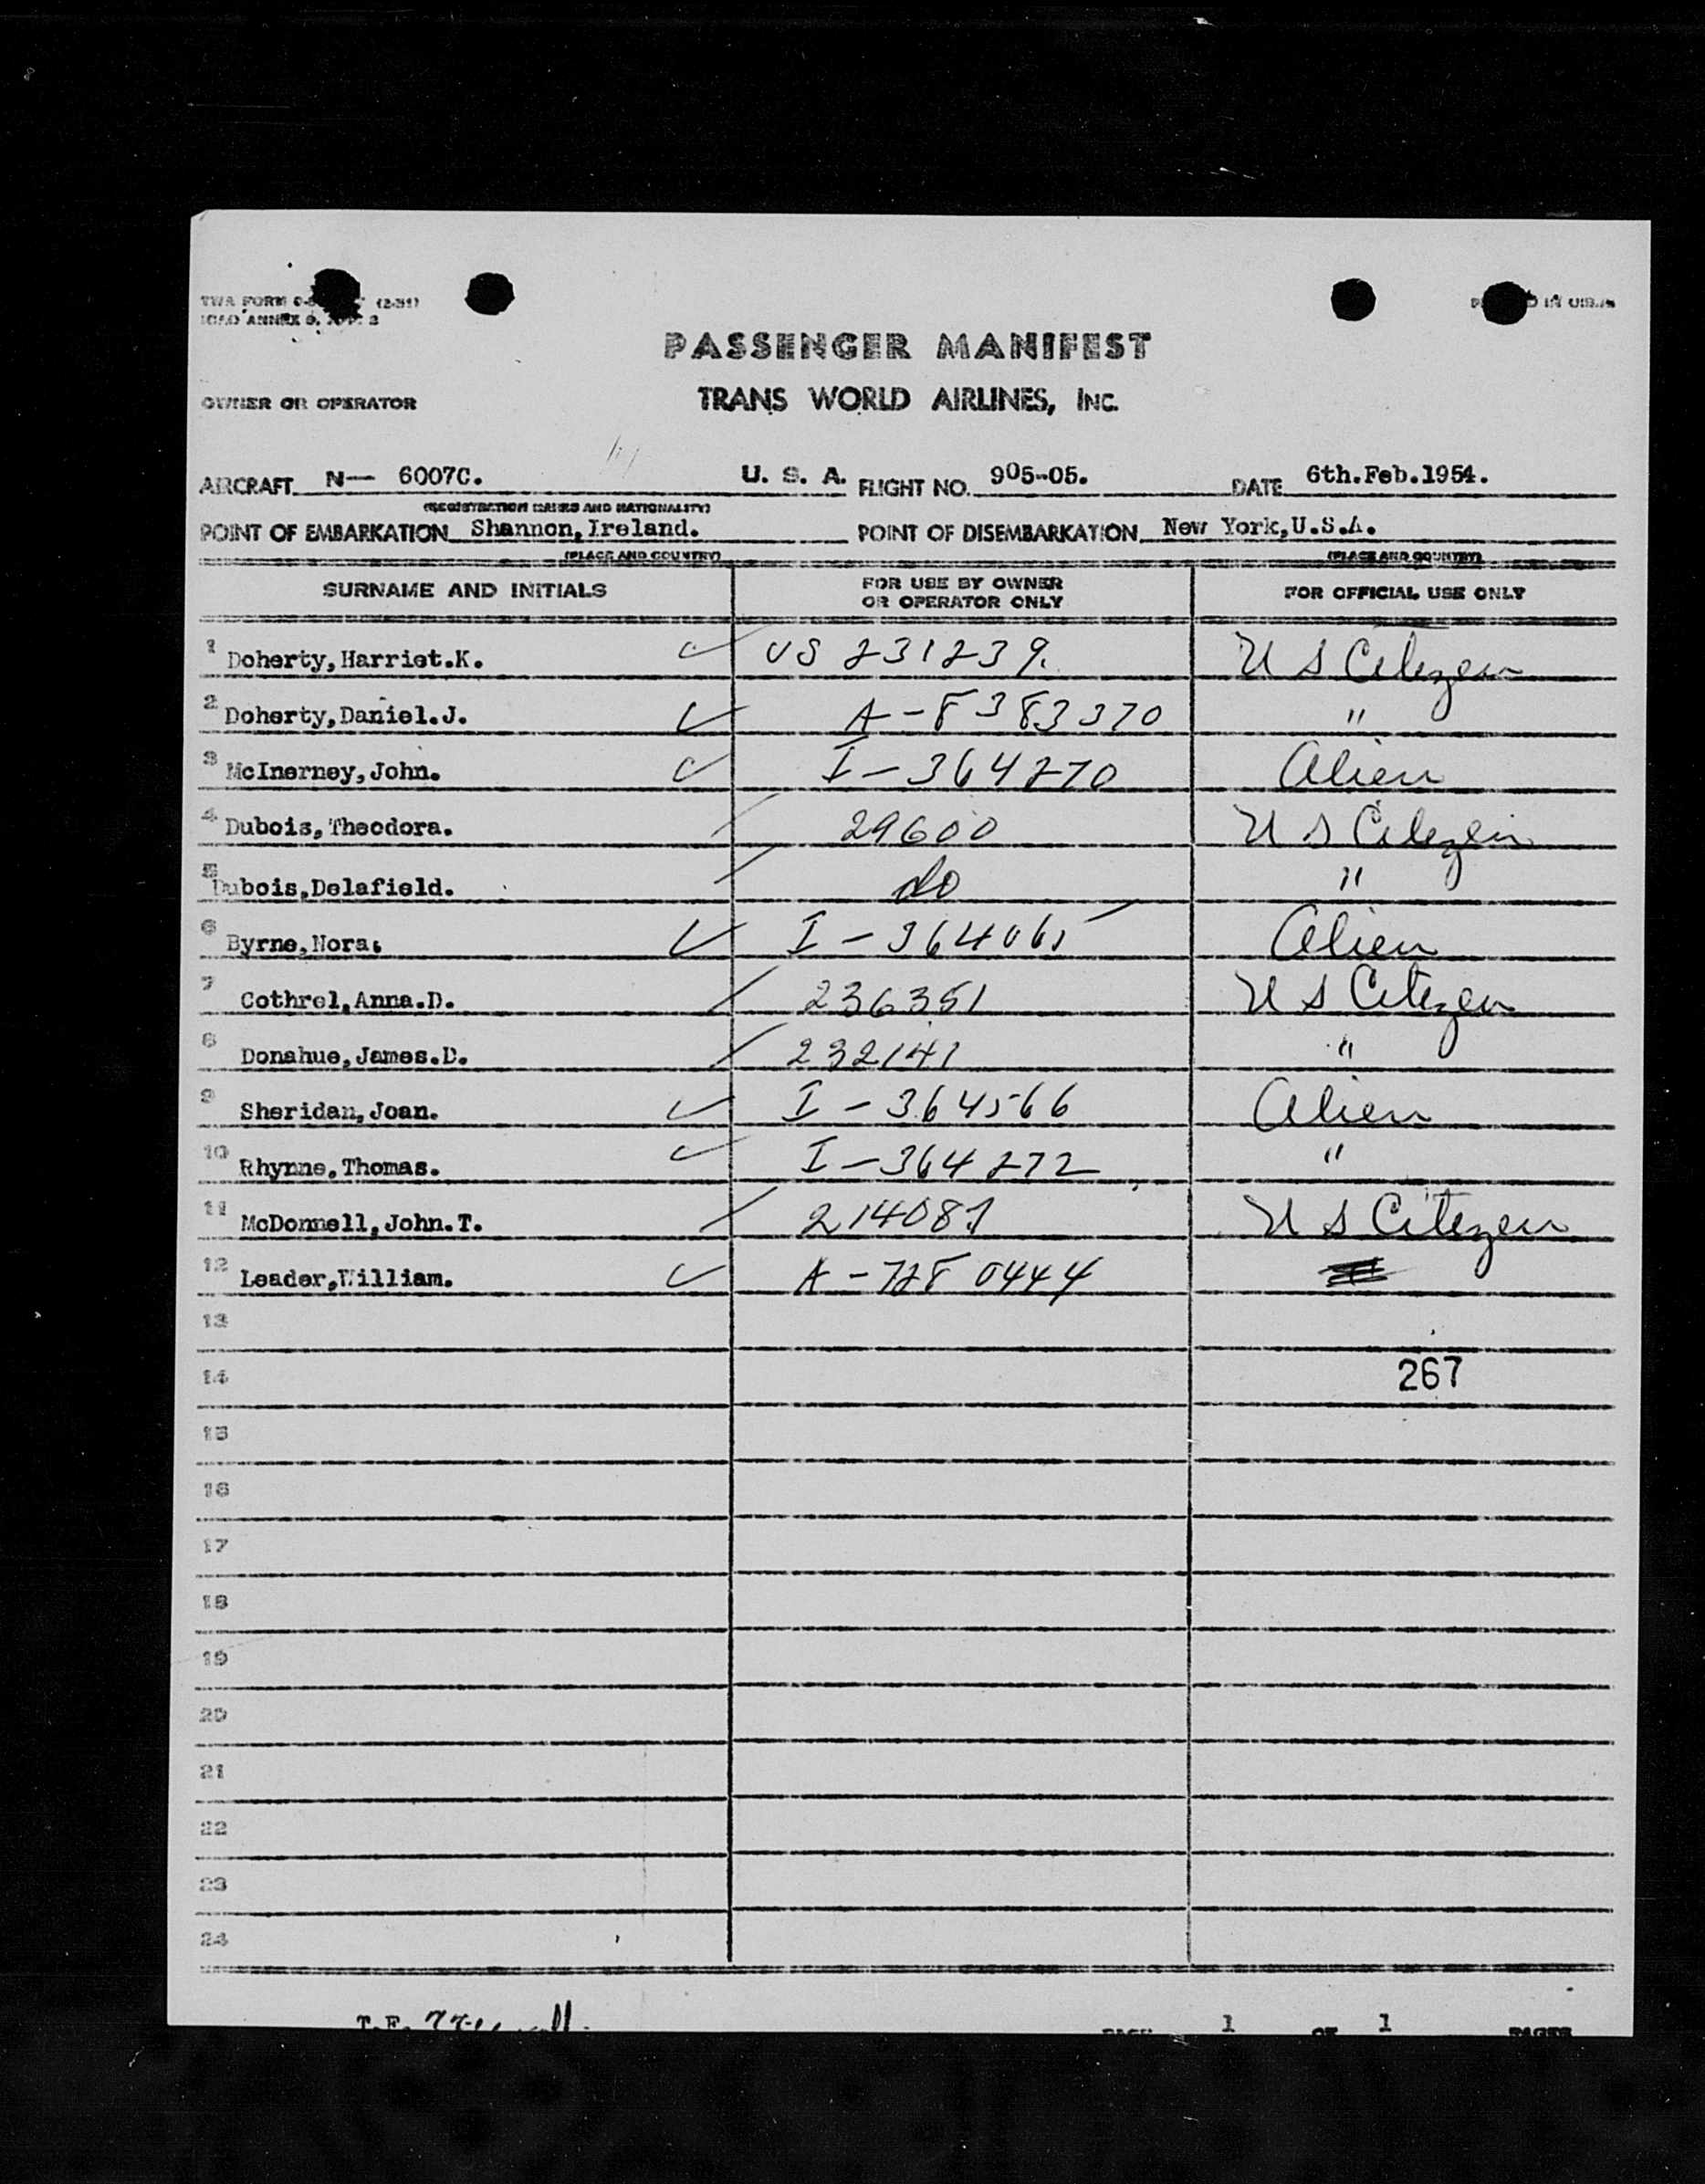 TWA FORM (2-51)
ICAO ANNEX 9, APP. 3
PRINTED IN U.S.A.
PASSENGER MANIFEST
OWNER OR OPERATOR TRANS WORLD AIRLINES, INC.
AIRCRAFT N— 6007C. U. S. A. FLIGHT NO. 905-05. DATE 6th.Feb.1954.
(REGISTRATION MARKS AND NATIONALITY)
POINT OF EMBARKATION Shannon,Ireland. POINT OF DISEMBARKATION New York,U.S.A.
(PLACE AND COUNTRY) (PLACE AND COUNTRY)
SURNAME AND INITIALS FOR USE BY OWNER OR OPERATOR ONLY FOR OFFICIAL USE ONLY
1 Doherty,Harriet.K. US 231239. U S Citizen
2 Doherty,Daniel.J. A-8383370 "
3 McInerney,John. I-364270 Alien
4 Dubois,Theodora. 29600 U S Citizen
5 Dubois,Delafield. do "
6 Byrne,Nora. I-364065 Alien
7 Cothrel,Anna.D. 236351 U S Citizen
8 Donahue,James.D. 232141 "
9 Sheridan,Joan. I-364566 Alien
10 Rhynne,Thomas. I-364272 "
11 McDonnell,John.T. 214081 U S Citizen
12 Leader,William. A-7280444
13
14 267
15
16
17
18
19
20
21
22
23
24
T.F.
PAGE 1 OF 1 PAGES